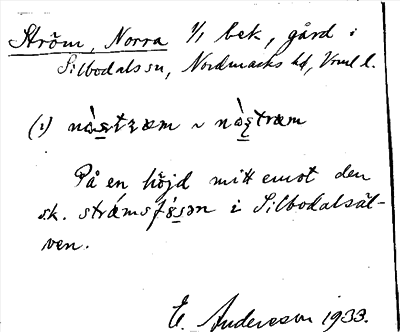 Ström, Norra 1/1 bek, gård i
Silbodals sn, Nordmarks hd, Vrml l.
(i) nòstræm ~ nòstræm
På en höjd mitt emot den
s.k. strǿmsfósən i Silbodalsäl-
ven.
E. Andersson 1933.